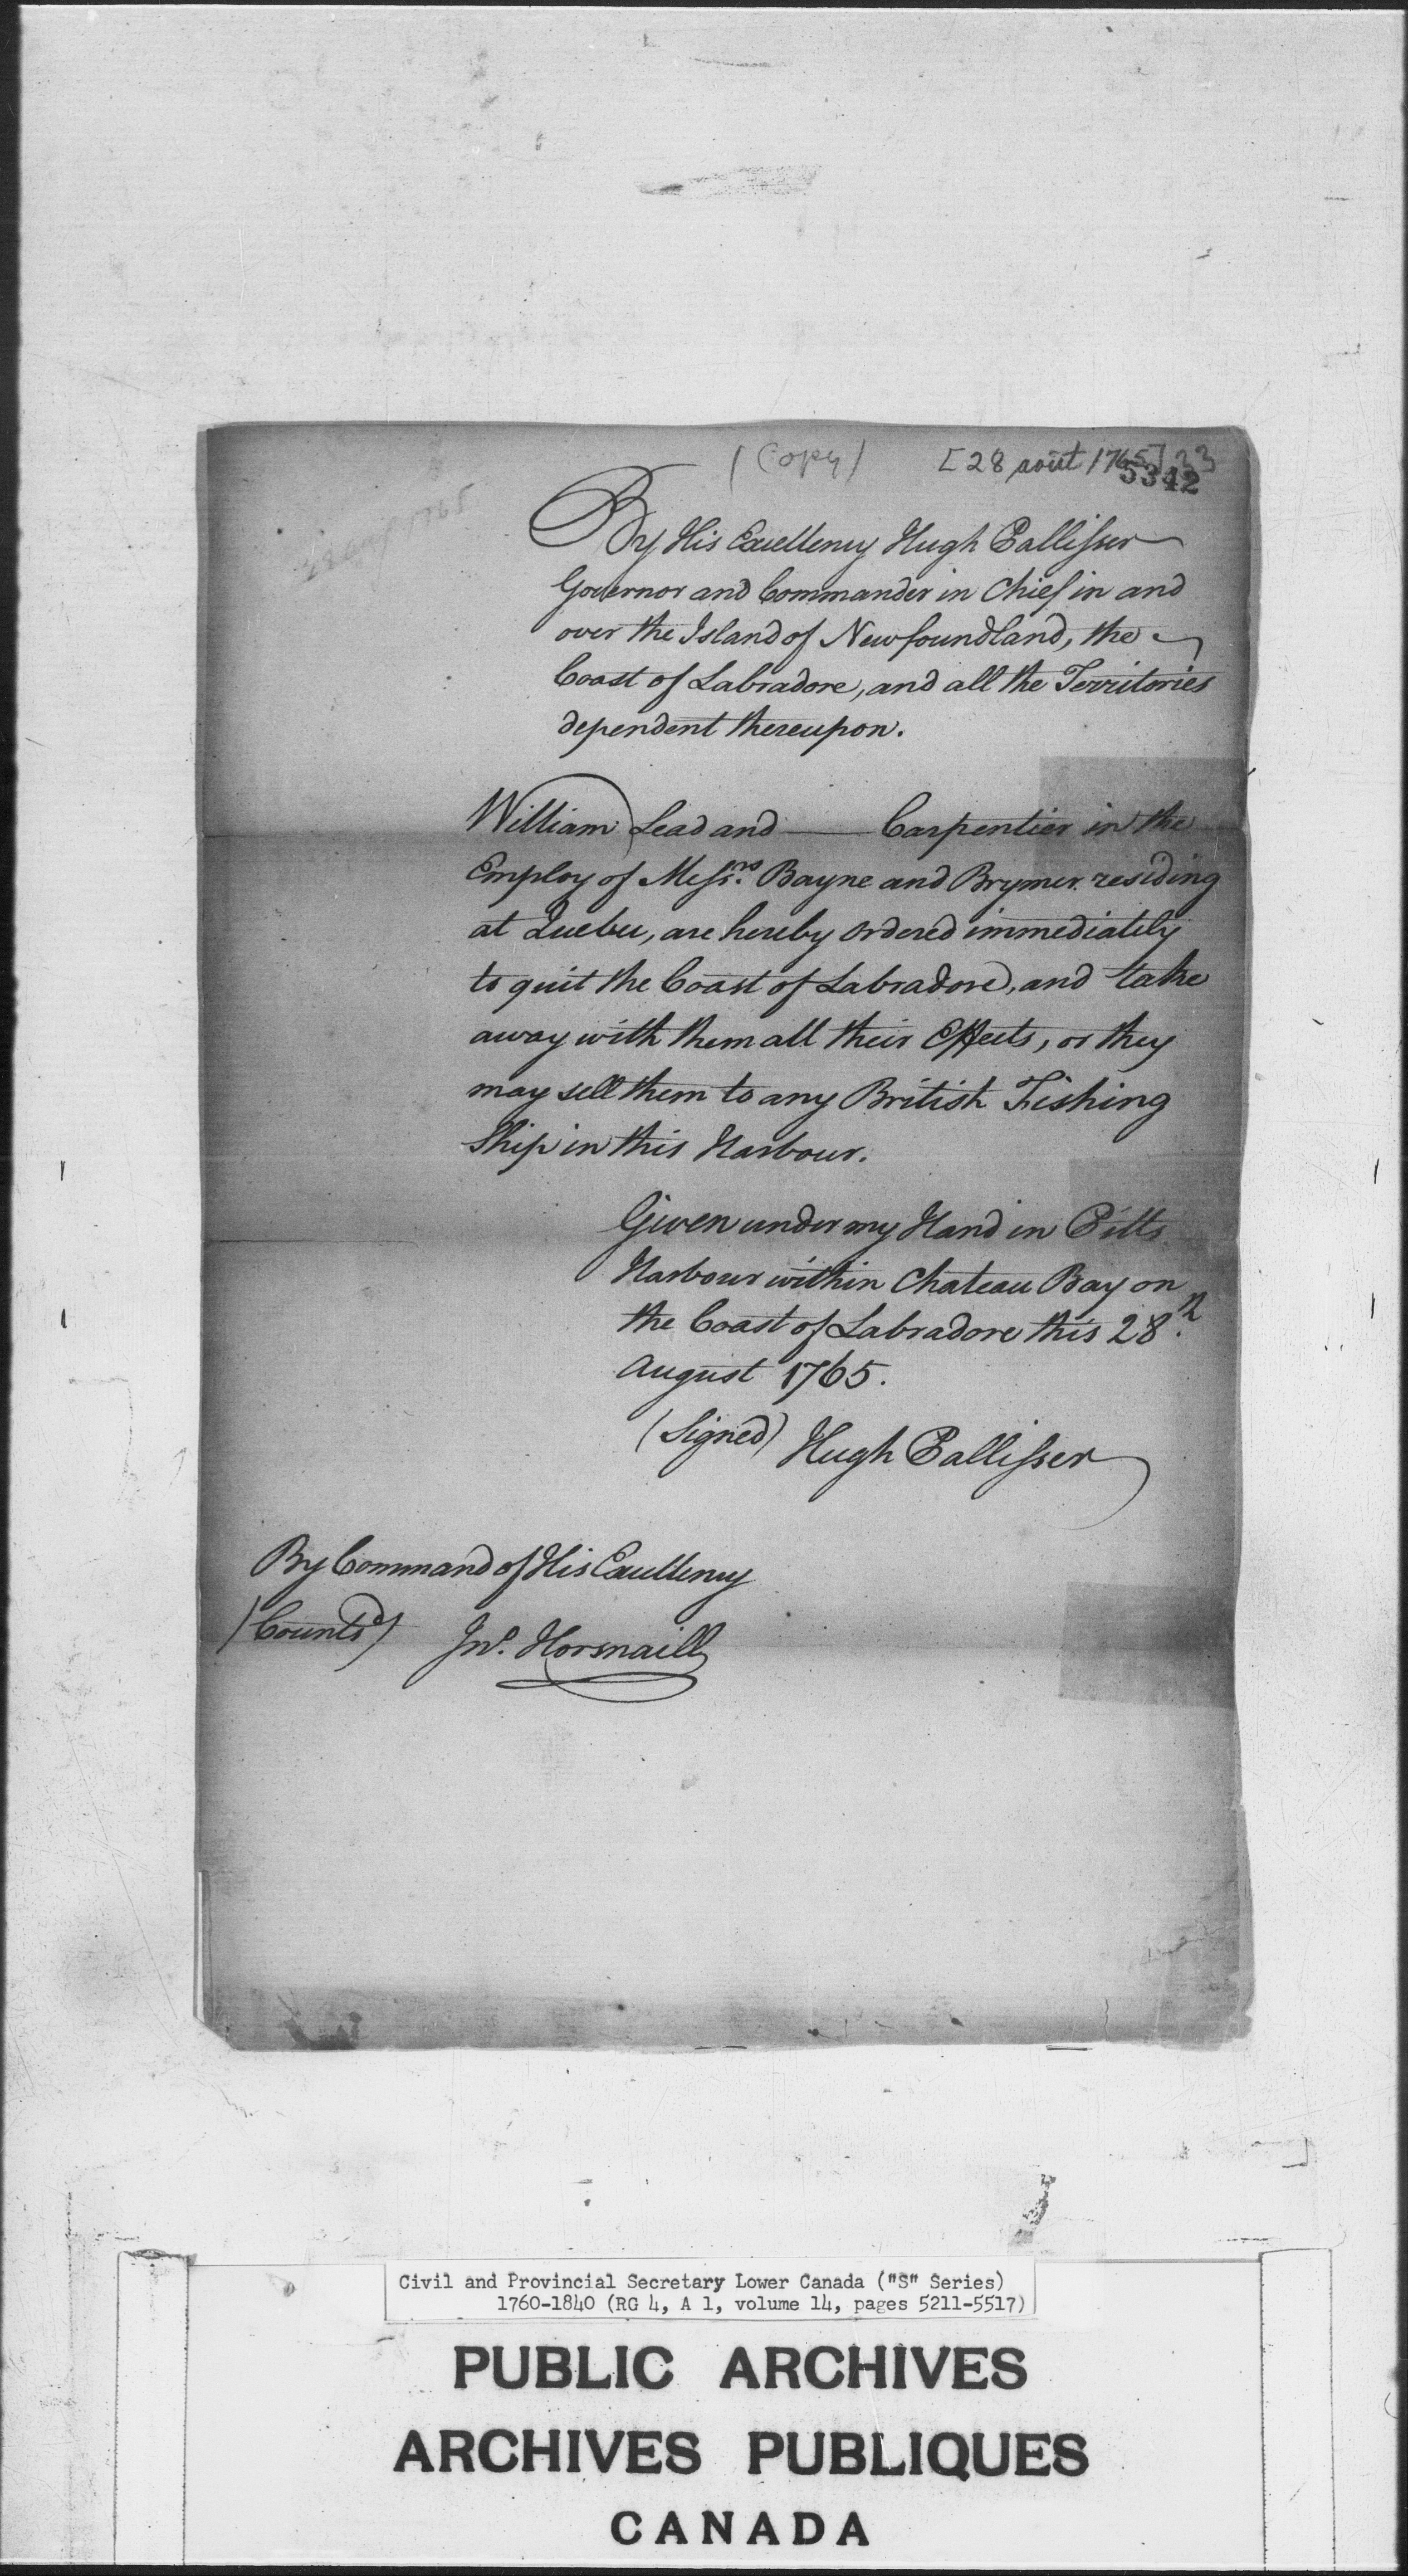 (Copy) [28 août 1765] 33
5342
By His Excellency Hugh Pallisser
Governor and Commander in Chief in and
over the Island of Newfoundland, the
Coast of Labradore, and all the Territories
dependent thereupon.
William Lead and —— Carpentier in the
Employ of Messrs. Bayne and Brymer residing
at Quebec, are hereby ordered immediately
to quit the Coast of Labradore, and take
away with them all their Effects, or they
may sell them to any British Fishing
Ship in this Harbour.
Given under my Hand in Pitts
Harbour within Chateau Bay on
the Coast of Labradore this 28th.
August 1765.
(Signed) Hugh Pallisser
By Command of His Excellency
(Countd) Jno. Horsnaill
Civil and Provincial Secretary Lower Canada ("S" Series)
1760-1840 (RG 4, A 1, volume 14, pages 5211-5517)
PUBLIC ARCHIVES
ARCHIVES PUBLIQUES
CANADA